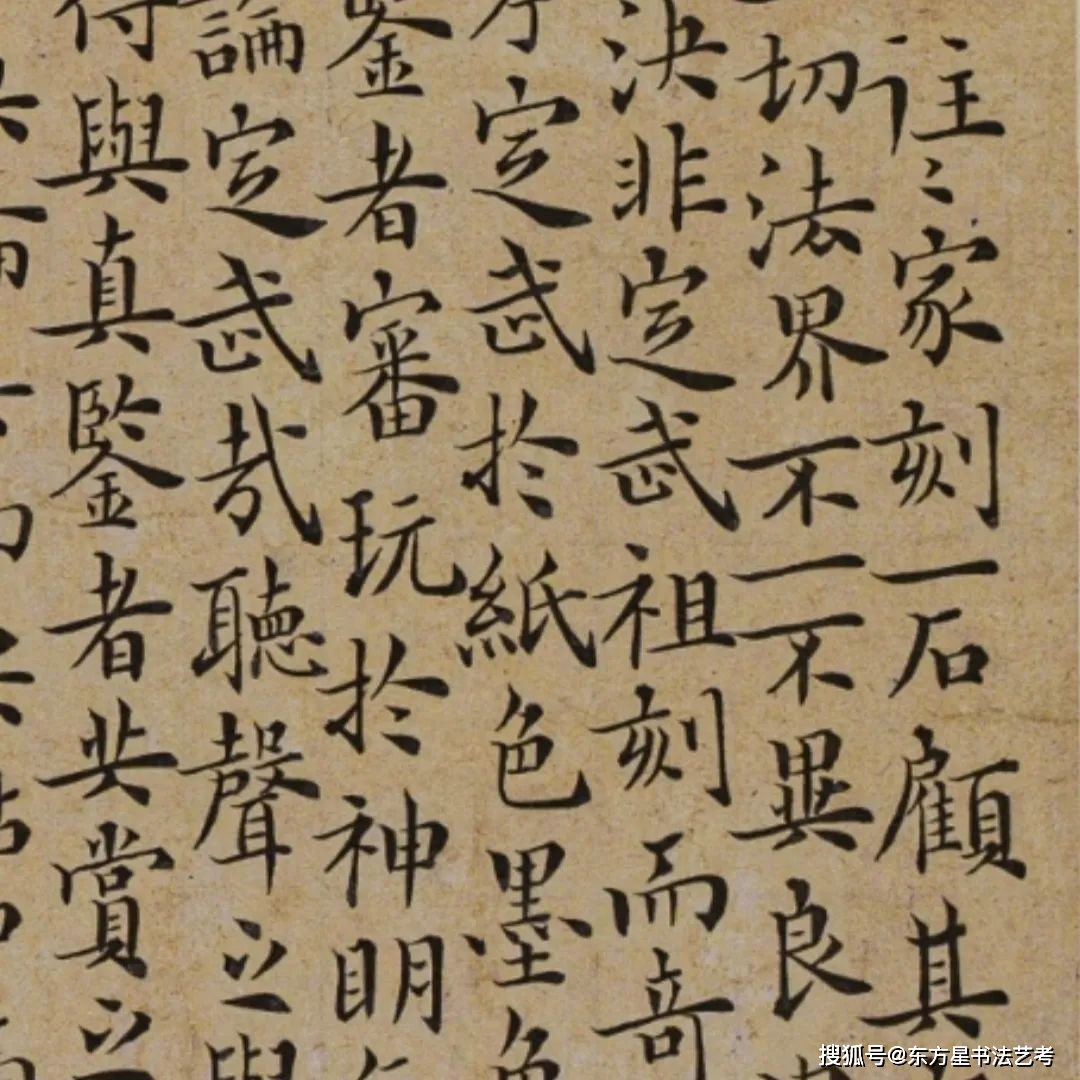 往〻家刻一石顧其
切法界不一不異良
決非定武祖刻而奇
定武於紙色墨色
鑒者審玩於神明
論定武哉聽聲之與
得與真鑒者共賞之
搜狐号@东方星书法艺考